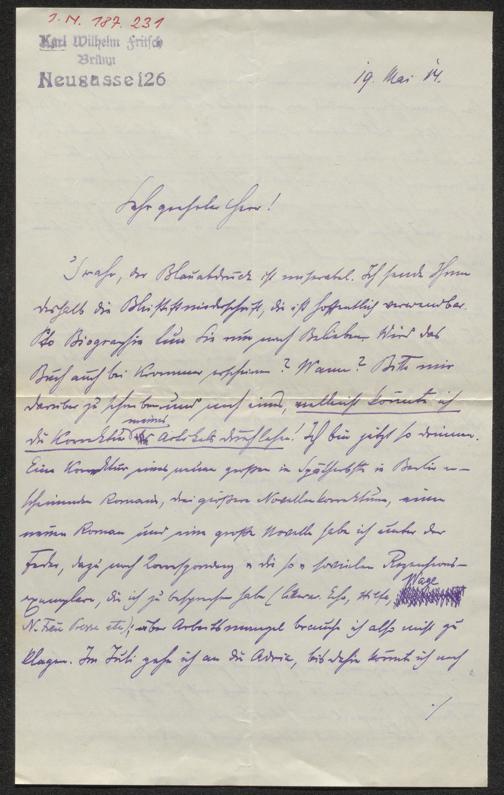 I. N. 187.231
Karl Wilhelm Fritsch
Brünn
Neugasse 126
19. Mai 14.
Sehr geehrter Herr!
's wahr, der Blauabdruck ist miserabel. Ich sende Ihnen
deshalb die Bleistiftniederschrift, die ist hoffentlich verwendbar.
Pto Biographie tun Sie nur nach Belieben. Wird das
Buch auch bei erscheinen? Wann? Bitte mir
darüber zu schreiben und noch eins, vielleicht könnte ich
die Korrektur meines Artikels durchsehen! Ich bin jetzt so drinnen.
Eine Korrektur eines neuen großen in Spätherbste in Berlin er-
scheinenden Romans, drei größere Novellenkorrekturen, einen
neuen Roman und eine große Novelle habe ich unter der
Feder, dazu noch Korrespondenz u. die so sovielen Rezensions-
exemplare, die ich zu besprechen habe (Literar. Echo, Wage
N. Freie Presse etc.); über Arbeitsmangel brauche ich also nicht zu
klagen. Im Juli gehe ich an die Adria, bis dahin könnt ich noch
./